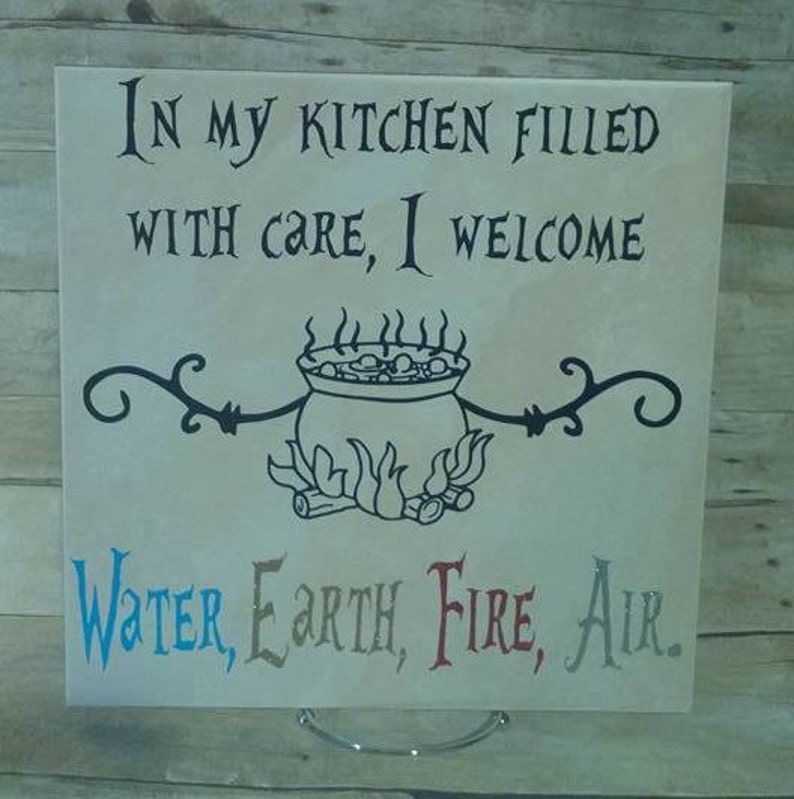 In my kitchen filled
with care, I welcome
Water, Earth, Fire, Air.